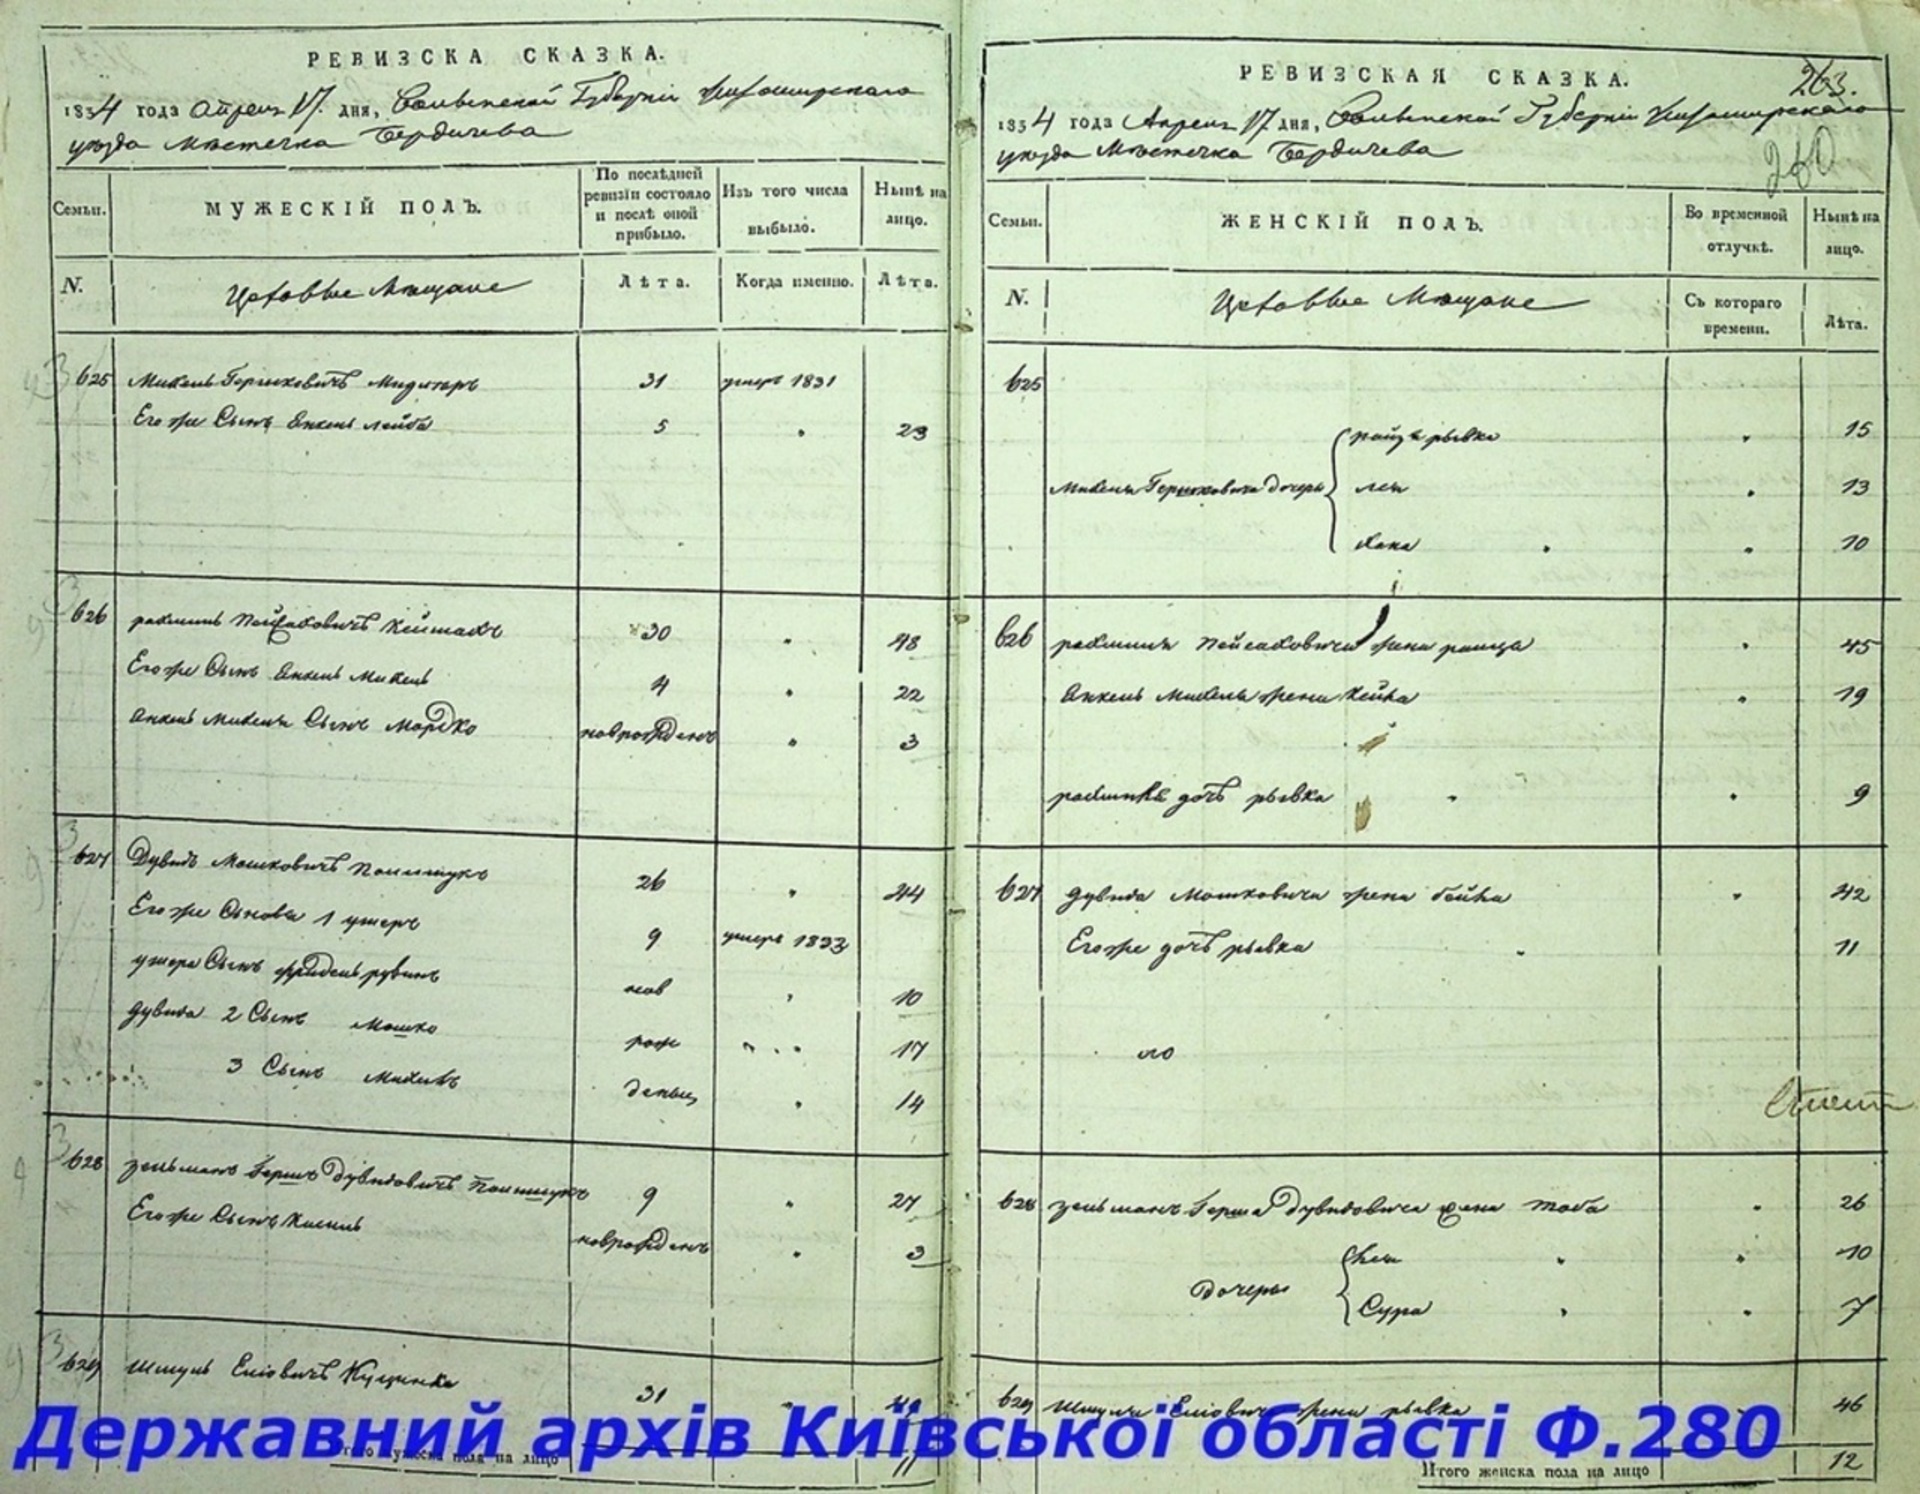 РЕВИЗСКА СКАЗКА.
1834 года Апреля 17. дня, Волынской Губерніи Житомирскаго
уезда Местечка Бердичева
Семьи.
МУЖЕСКІЙ ПОЛЪ.
По послѣдней ревизіи состояло и послѣ оной прибыло.
Изъ того числа выбыло.
Нынѣ на лицо.
N.
Цеховые Мещане
Лѣта.
Когда именно.
Лѣта.
625 Михель Гершковичъ 31 умеръ 1831
Егоже Сынъ Янкель лейба 5 23
626 рахмиль Пейсаховичъ 30 48
Егоже Сынъ Янкель Михель 4 22
Янкель Михеля Сынъ Мордко новрожденъ 3
627 Дувидъ Мошковичъ Полищукъ 26 44
Егоже Сыновья 1 ушеръ 9 умеръ 1833
ушера Сынъ рувинъ нов 10
дувида 2 Сынъ Мошко рож 17
3 Сынъ Михель денны 14
628 зельманъ Гершъ Дувидовичъ Полищукъ 9 27
Егоже Сынъ новрожденъ 3
629 Шмуль Еліовичъ 31 49
Итого мужеска пола на лицо 11
РЕВИЗСКАЯ СКАЗКА.
263.
260
1834 года Апреля 17 дня, Волынской Губерніи Житомирскаго
уезда Местечка Бердичева
Семьи.
ЖЕНСКІЙ ПОЛЪ.
Во временной отлучкѣ.
Нынѣ на лицо.
N.
Цеховые Мещане
Съ котораго времени.
Лѣта.
625
рывка 15
Михеля Гершковича дочери лея 13
хана 10
626 рахмиля Пейсаховича жена раица 45
Янкель Михеля жена хейка 19
рахмиля дочь рывка 9
627 дувида Мошковича жена бейла 42
Егоже дочь рывка 11
628 зельманъ Герша Дувидовича жена Тоба 26
10
дочери
Сура 7
629 Шмуля Еліовича жена рывка 46
Итого женска пола на лицо 12
Державний архів Київської області Ф.280